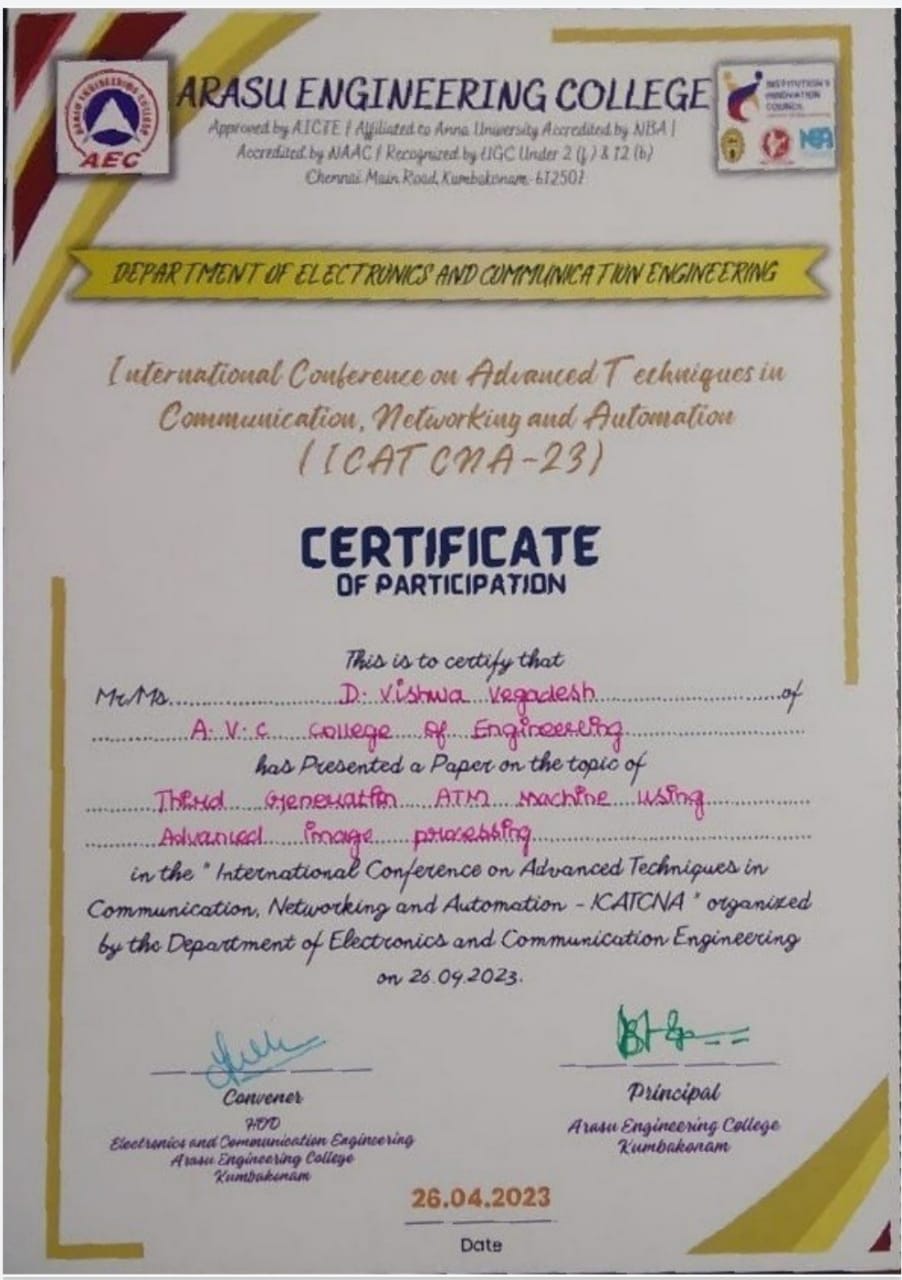 ARASU ENGINEERING COLLEGE
Approved by AICTE | Affiliated to Anna University Accredited by NBA |
Accredited by NAAC | Recognized by UGC Under 2 (f) & 12 (b)
Chennai Main Road, Kumbakonam-612501
ARASU ENGINEERING COLLEGE
AEC
INSTITUTION'S
INNOVATION
COUNCIL
DEPARTMENT OF ELECTRONICS AND COMMUNICATION ENGINEERING
International Conference on Advanced Techniques in
Communication, Networking and Automation
(ICATCNA-23)
CERTIFICATE
OF PARTICIPATION
This is to certify that
Mr/Ms. D. Vishwa Vegadesh of
A.V.C College of Engineering
has Presented a Paper on the topic of
Third Generation ATM Machine using
Advanced image processing
in the " International Conference on Advanced Techniques in
Communication, Networking and Automation - ICATCNA " organized
by the Department of Electronics and Communication Engineering
on 26.04.2023.
Convener
HOD
Electronics and Communication Engineering
Arasu Engineering College
Kumbakonam
Principal
Arasu Engineering College
Kumbakonam
26.04.2023
Date